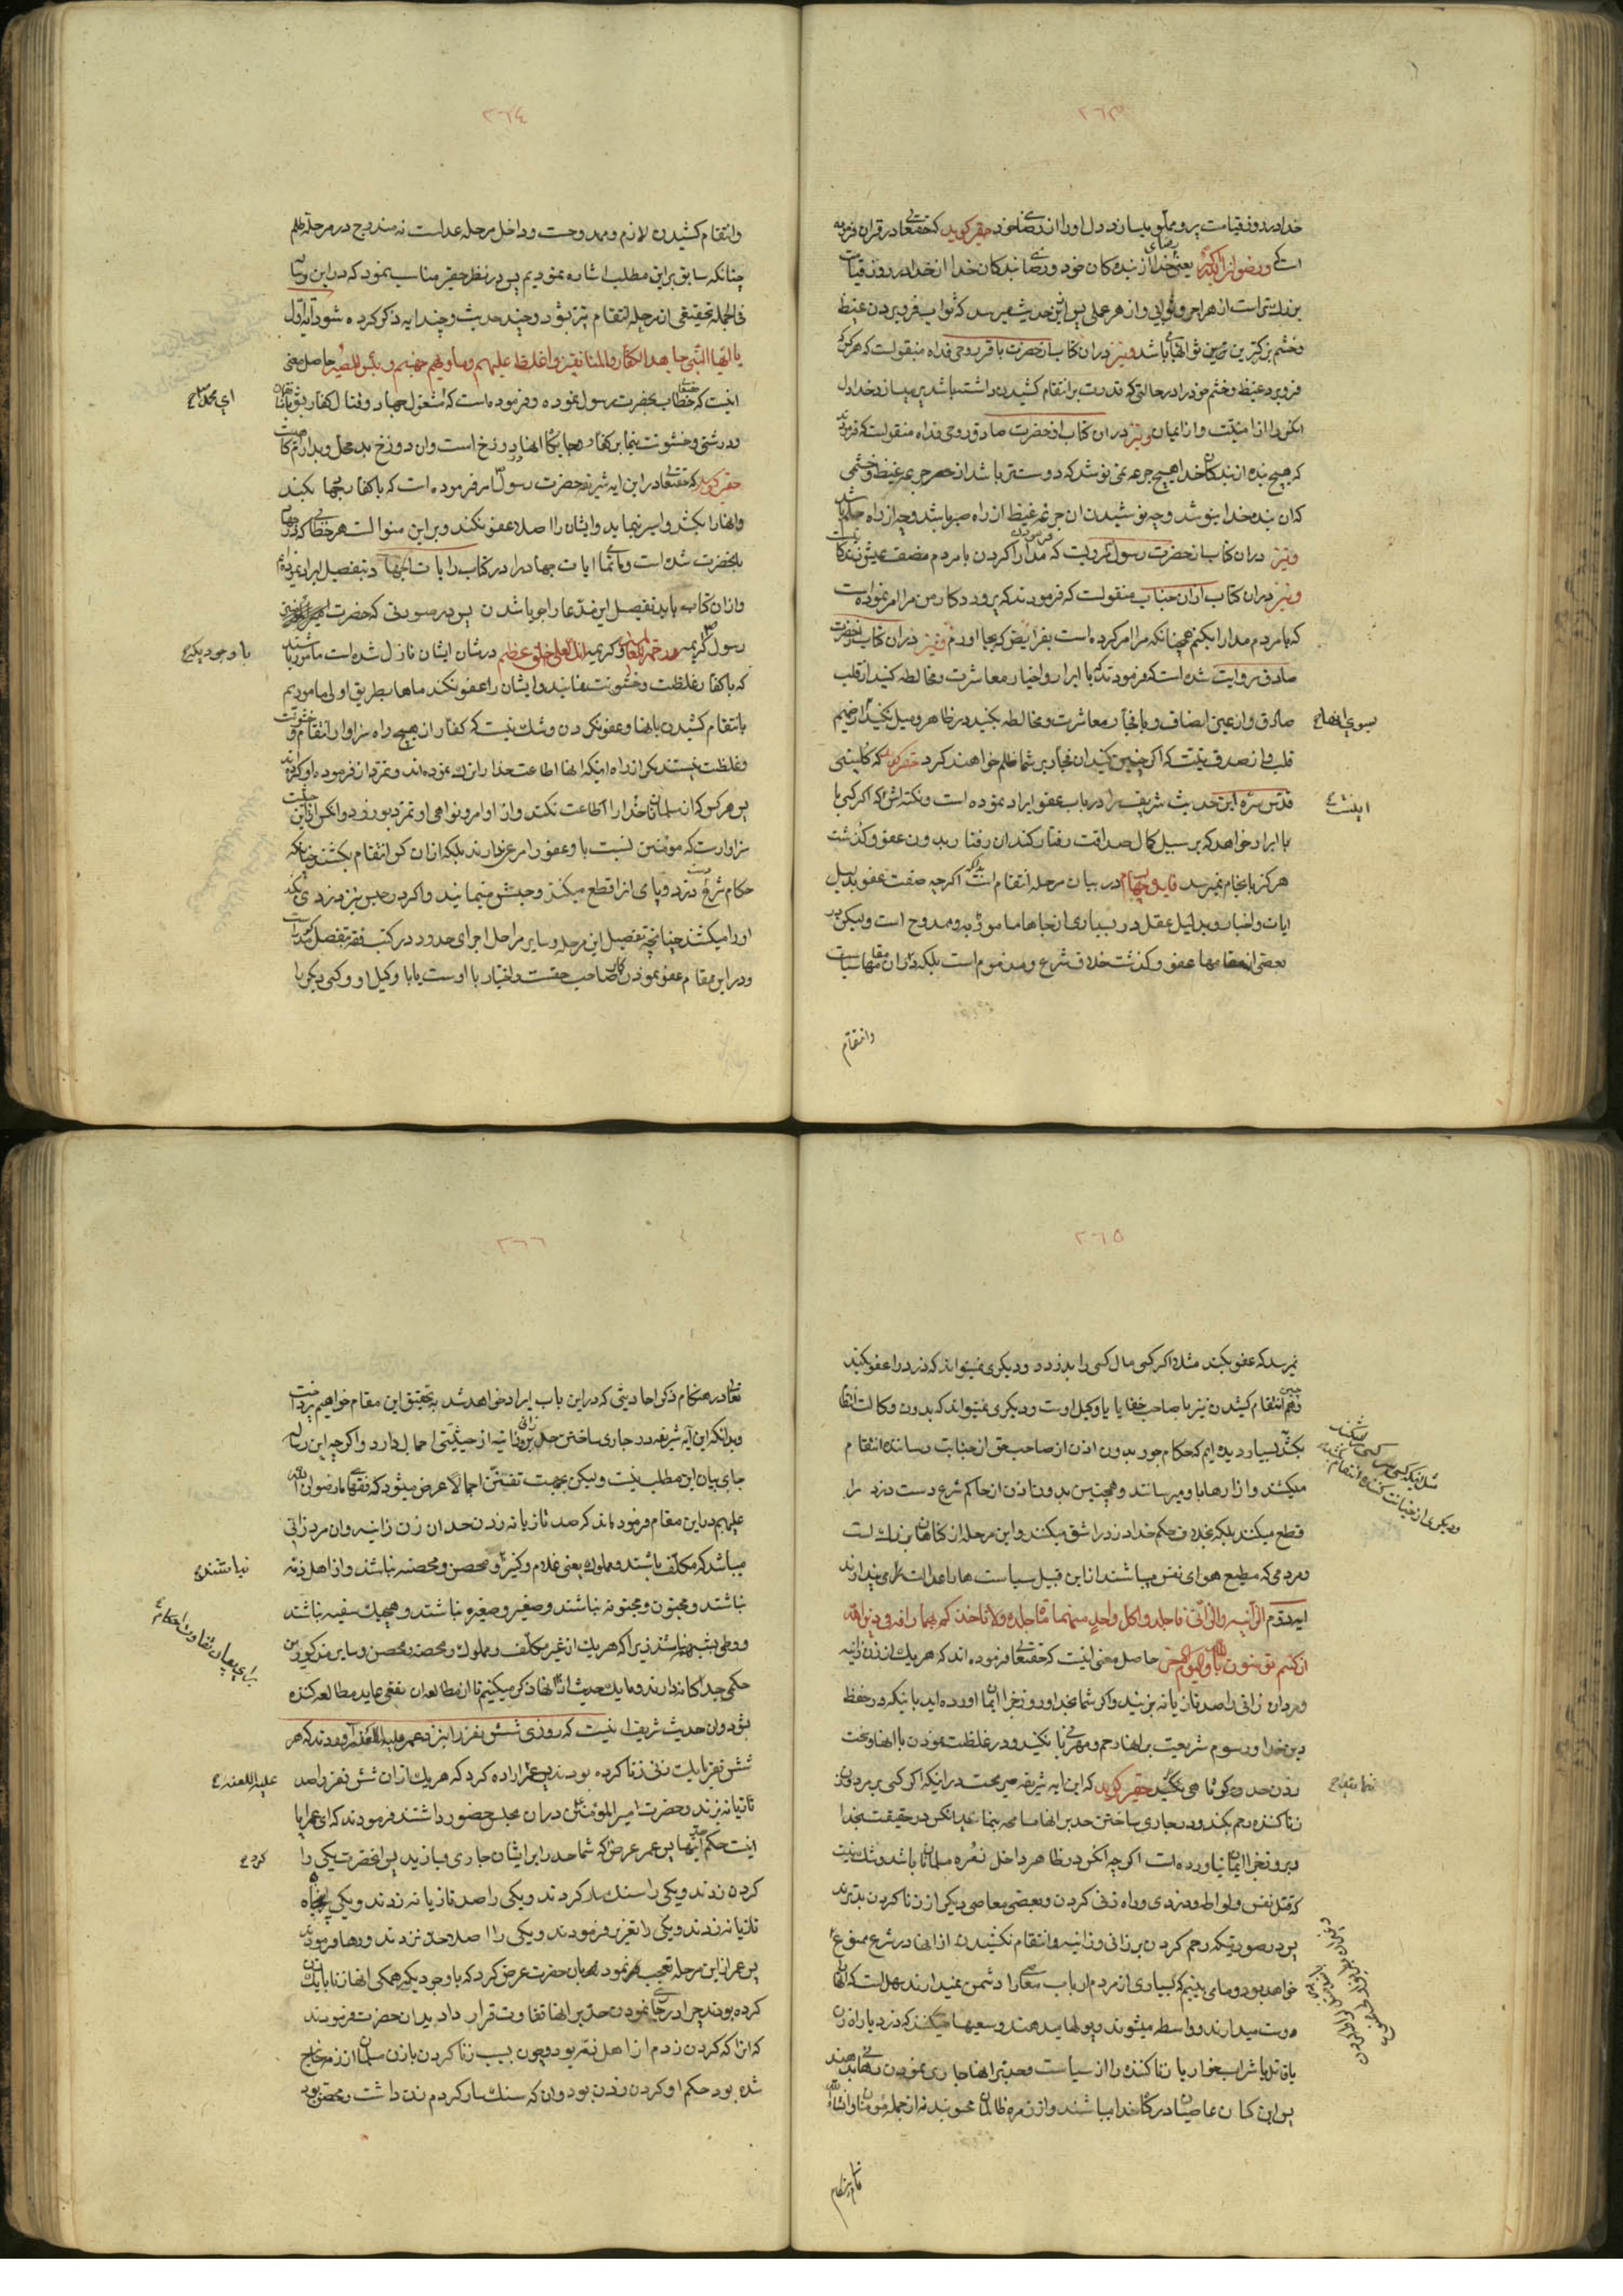 ٢٦٣
خدا در روز قیامت پر و مملو میسازد دل او را از رضای خود حقیر گوید که حقتعالی در قران فرموده
است که ورضوان اکبر یعنی رضای خدا از بنده کان خود و رضای بنده کان خدا از خدا در روز قیامت
بزرك تر است از هر اجر و ثوابی و از هر عملی پس از این حدیث میرسد که ثواب فرو بردن غیظ
و خشم بزرکترین ثوابها باشد و نیز در ان کتاب از حضرت باقر روحی فداه منقولست که هر کس که
فرو برد غیظ و خشم خود را در حالتی که قدرت بر انتقام کشیدن داشته باشد پر میسازد خدا دل
انکس را از امنیت و از ایمان و نیز در ان کتاب از حضرت صادق روحی فداه منقولست که فرمودند
که هیچ بنده از بندکان خدا هیچ جرعه نمی نوشد که دوستتر باشد از جرعه غیظ و خشمی
که ان بنده خدا بنوشد و چه نوشیدن ان جرعه غیظ از راه صبر باشد و چه از راه حلم باشد
و نیز در ان کتاب از حضرت رسول مرویست که فرمودند مدارا کردن با مردم نصف عیش زندکانیست
و نیز در ان کتاب از ان جناب منقولست که فرمودند که پروردکار من مرا امر نموده است
که با مردم مدارا بکنم همچنانکه مرا امر کرده است بفرایض که بجا اورم و نیز در ان کتاب از حضرت
صادق روایت شده است که فرمودند که با ابرار و اخیار معاشرت و مخالطه کنید از قلب
صادق و از عین انصاف و با فجار معاشرت و مخالطه بکنید در ظاهر و میل نکنید از صمیم
بسوی انها صح
قلب و از صدق نیت که اکر چنین کنید ان فجار بر شما ظلم خواهند کرد حقیر گوید که کلینی
قدس سره این حدیث شریف را در باب عفو ایراد نموده است و نکته اش که اکر کسی با
اینست
با ابرار خواهد که بر سبیل کمال صداقت رفتار کند ان رفتار بدون عفو و گذشت
هرکز بانجام نمیرسد فایده چهارم در بیان مرحله انتقام است بدانکه اکر چه صفت عفو بدلیل
ایات و اخبار و بدلیل عقل در بسیاری از جاها مامور به و ممدوح است و لیکن در
بعضی از مقامها عفو و کذشت خلاف شرع و مذموم است بلکه در ان مقامها سیاست
وانتقام
٢٦٤
وانتقام کشیدن لازم و ممدوحست و داخل مرحله عدالت نه مندرج در مرحله ظلم
چنانکه سابق بر این مطلب اشاره نمودیم پس در نظر حقیر مناسب نمود که در این رساله
فی الجمله تحقیقی از مرحله انتقام نیز بشود و چند حدیث و چند ایه ذکر کرده شود آیه اول
یا ایها النبی جاهد الکفار والمنافقین واغلظ علیهم وماویهم جهنم وبئس المصیر حاصل معنی
اینست که حقتعالی خطاب بحضرت رسول نموده و فرموده است که مشغول جهاد و قتال کفار بشو
ای محمد صلعم صح
و درشتی و خشونت بنما بر کفار و جایکاه انها دوزخ است و ان دوزخ بد محل و بد ارامکاهست
حقیر گوید که حقتعالی در این ایه شریفه حضرت رسول امر فرموده است که با کفار جهاد بکند
و انهارا بکشد و اسیر نماید و ایشان را اصلا عفو نکند و بر این منوالست هر خطابی که در جهاد
بانحضرت شده است و ما تمام ایات جهاد را در کتاب رایات الجهاد بتفصیل ایراد نموده ایم
و از ان کتاب باید تفصیل این مدعا را جویا شدن پس در صورتی که حضرت
رسول که کریمه رحمة للعالمین و کریمه انك لعلی خلق عظیم در شان ایشان نازل شده است مامور باشند
با وجود یکه صح
که با کفار غلظت و خشونت نمایند و ایشان را عفو نکند ماها بطریق اولی ماموریم
بانتقام کشیدن بانها و عفو نکردن و شك نیست که کفار از هیچ راه سزاوار انتقام و خشونت
و غلظت نیستند مکر از راه اینکه انها اطاعت خدا را ترك نموده اند و تمرد از فرموده او کرده اند
پس هر کس که از مسلمانان خدارا اطاعت نکند و از اوامر و نواهی او تمرد بورزد و انکس از این حیثیت
سزاوارست که مومنین نسبت با و عفو را مرعی ندارند بلکه از ان کس انتقام بکشند چنانکه
حکام شرع دست دزد و پای او را قطع میکنند و حبسش مینمایند و اکر در حبس نیز دزدی بکند
او را میکشند چنانچه تفصیل این مرحله و سایر مراحل اجرای حدود در کتب فقه بتفصیل مذکور است
و در این مقام عفو نمودن کار صاحب حقست و اختیار با اوست یا با وکیل او و کسی دیکر را
٢٦٥
نمیرسد که عفو بکند مثلا اکر کسی مال کسی را بدزدد و دیکری نمیتواند که دزد را عفو بکند
و همچنین انتقام کشیدن نیز با صاحب حق یا با وکیل اوست و دیکری نمیتواند که بدون وکالت انتقام
بکشد بسیار دیده ایم که حکام جور بدون اذن از صاحب حق از جنایت رساننده انتقام
مثل اینکه کسی پسر کسی میکشد
و دیکری از جنایت کننده انتقام میکشد
میکشند و ازارها باو میرسانند و همچنین بدون اذن از حاکم شرع دست دزد را
قطع میکنند بلکه بخلاف حکم خدا دزد را شق میکنند و این مرحله از کناهان بزرك است
و مردمی که مطیع هوای نفس میباشند از این قبیل سیاست ها را عدالت نام می پندارند
ایه دوم الزانیة والزانی فاجلدوا کل واحد منهما مائة جلده ولا تاخذکم بهما رافة فی دین الله
ان کنتم تؤمنون بالله والیوم الاخر حاصل معنی اینست که حقتعالی فرموده اند که هر یك از زن زانیه
و مردان زانی را صد تازیانه بزنید و اکر شما بخدا و روز جزا ایمان اورده اید باینکه در حفظ
دین خدا و رسوم شریعت بر انها رحم و مهربانی نکنید و در غلظت نمودن با انها و سخت
زدن حد کوتاهی نکنید حقیر گوید که این ایه شریفه صریحست در اینکه اکر کسی بر مرد و زن
زنا کننده رحم بکند و در جاری ساختن حد بر انها مسامحه بنماید انکس در حقیقت بخدا
و بروز جزا ایمان نیاورده است اکر چه انکس در ظاهر داخل زمره مسلمانان باشد و شك نیست
که قتل نفس و لواط و دزدی و راه زنی کردن و بعضی معاصی دیکر از زنا کردن بدترند
پس در صورتیکه رحم کردن بر زانی و زانیه و انتقام نکشیدن از انها در شرع ممنوع
خواهد بود و ما می بینیم که بسیاری از مردم ارباب معاصی را دشمن نمیدارند بهل است که انها را
دوست میدارند و واسطه میشوند و پولها میدهند و سعیها میکنند که دزد یا راه زن
یا قاتل یا شرابخوار یا زنا کننده را از سیاست و حد بر انها جاری نمودن رهایی دهند
پس این کسان عاصیان درکاه خدا میباشند و از زمره ظالمان محسوبند نه از جمله مؤمنان و انشاء الله
٢٦٦
تعالی در هنکام ذکر احادیثی که در این باب ایراد خواهد شد بتحقیق این مقام خواهیم پرداخت
و بدانکه این آیه شریفه در جاری ساختن حد بر زانی و زانیه از حیثیتی اجمال دارد و اکر چه این رساله
جای بیان این مطلب نیست و لیکن بجهت تفنن اجمالا عرض میشود که فقهای ما رضوان الله
علیهم در این مقام فرموده اند که صد تازیانه زدن حد ان زن زانیه و ان مرد زانی
میباشد که مکلف باشند و مملوك یعنی غلام و کنیز و محصن و محصنه نباشند و از اهل ذمه
نباشند صح
نباشند و مجنون و مجنونه نباشند و صغیر و صغیره نباشند و هیچیك سفیه نباشند
و وطی بشبهه نباشد زیرا که هر یك از غیر مکلف و مملوك و محصنه و محصن و سایر مذکورین
حکمی جداکانه دارند و ما یك حدیث از انها ذکر میکنیم تا از مطالعه ان نفعی عاید مطالعه کننده
بشود و ان حدیث شریف اینست که روزی شش نفر را بنزد عمر علیه اللعنه آوردند که هر
شش نفر با یك زنی زنا کرده بودند پس عمر اراده کرد که هر یك از ان شش نفر را صد
علیه اللعنه
تازیانه بزند و حضرت امیر المؤمنین در ان مجلس حضور داشتند فرمودند که ای عمر ایا
اینست حکم اینها پس عمر عرض کرد که شما حد را بر ایشان جاری سازید پس انحضرت یکی را
کردن زدند و یکی را سنکسار کردند و یکی را صد تازیانه زدند و یکی پنجاه
تازیانه زدند و یکی را تعزیر فرمودند و یکی را اصلا حد نزدند و رها فرمودند
پس عمر از این مرحله تعجب نمود بان حضرت عرض کرد که با وجود یکه همکی انها زنا با یك زن
کرده بودند چرا در جاری نمودن حد بر انها تفاوت قرار دادید ان حضرت فرمودند
که انرا که کردن زدم از اهل ذمه بود و چون بسبب زنا کردن با زن مسلمان از ذمه خارج
شده بود حکم او کردن زدن بود و ان که سنکسار کردم زن داشت و محصن بود